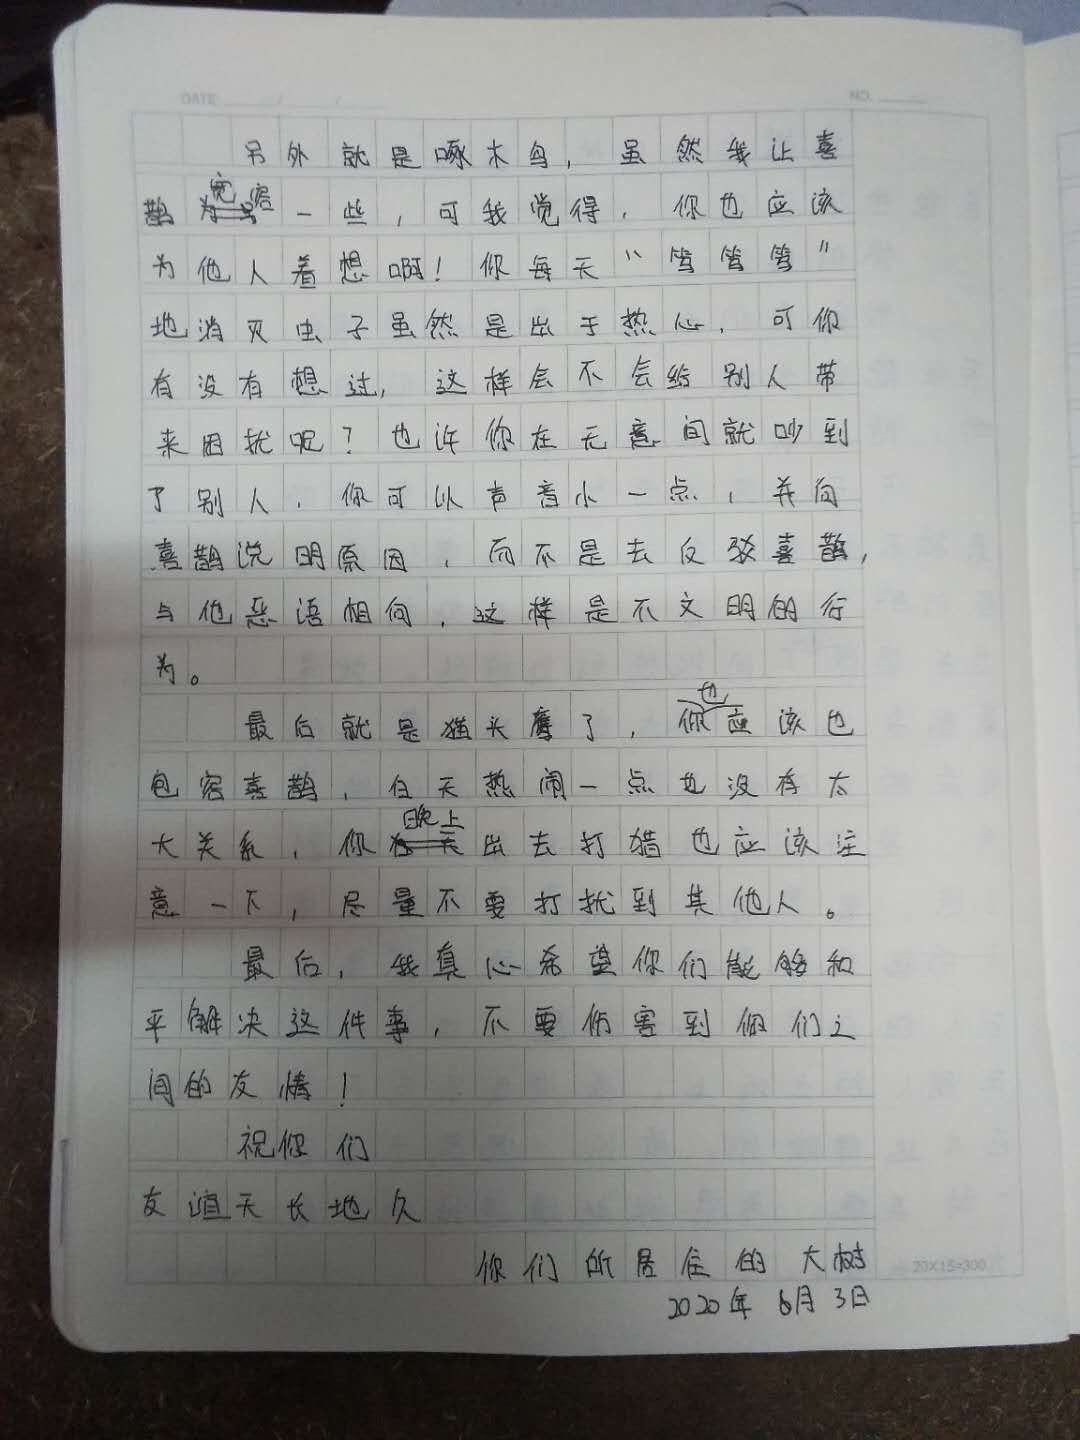 DATE
NO.
另外就是啄木鸟，虽然我让喜
鹊宽容一些，可我觉得，你也应该
为他人着想啊！你每天“笃笃笃”
地消灭虫子虽然是出于热心，可你
有没有想过，这样会不会给别人带
来困扰呢？也许你在无意间就吵到
了别人，你可以声音小一点，并向
喜鹊说明原因，而不是去反驳喜鹊，
与他恶语相向，这样是不文明的行
为。
最后就是猫头鹰了，你也应该也
包容喜鹊，白天热闹一点也没有太
大关系，你晚上出去打猎也应该注
意一下，尽量不要打扰到其他人。
最后，我真心希望你们能够和
平解决这件事，不要伤害到你们之
间的友情！
祝你们
友谊天长地久
你们所居住的大树
20×15=300
2020年6月3日